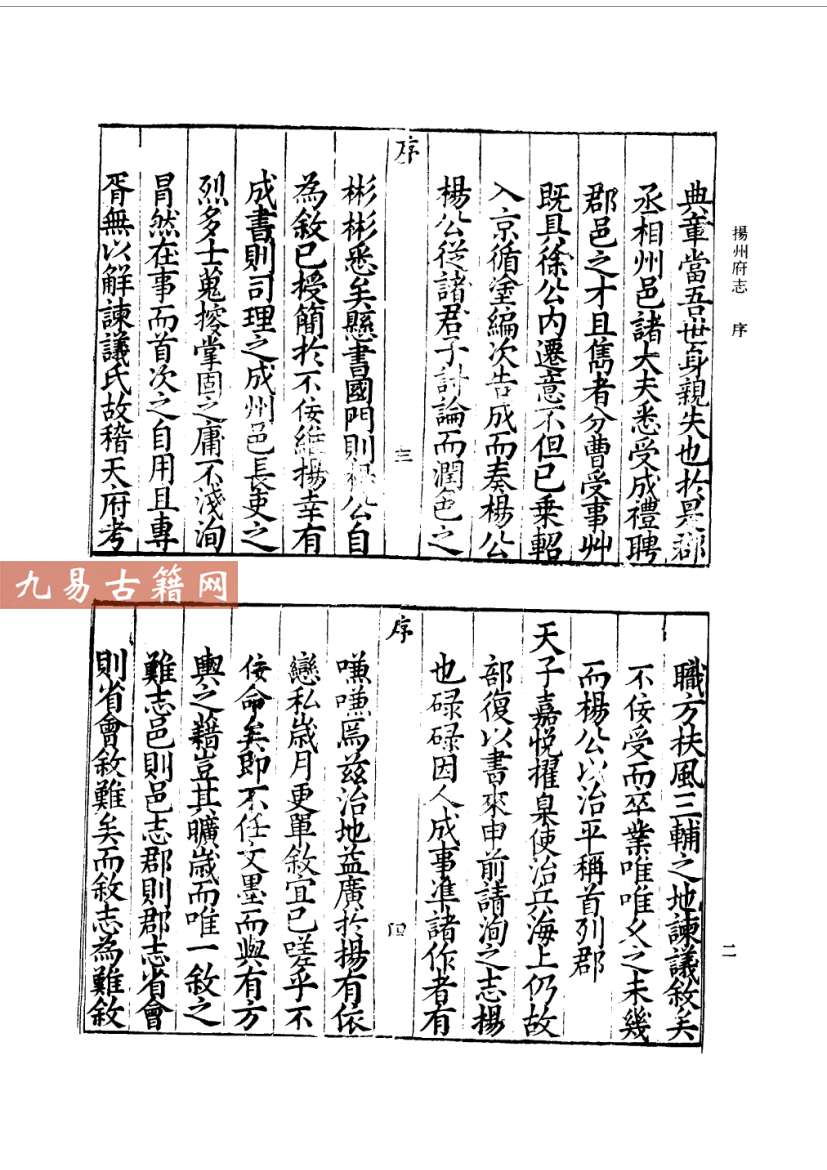 揚州府志 序
典章當吾世身親失也於是郡
丞相州邑諸大夫悉受成禮聘
郡邑之才且雋者分曹受事艸
既具徐公內遷意不但已乗軺
入京循塗編次告成而奏楊公
楊公從諸君子討論而潤色之
序
三
彬彬悉矣懸書國門則楊公自
為敘已授簡於不佞維揚幸有
成書則司理之成州邑長吏之
烈多士蒐擥掌固之庸不淺洵
冐然在事而首次之自用且專
胥無以解諫議氏故稽天府考
職方扶風三輔之地諫議敘矣
不佞受而卒業唯唯久之未幾
而楊公以治平稱首列郡
天子嘉悅擢臬使治兵海上仍故
部復以書來申前請洵之志揚
也碌碌因人成事準諸作者有
序
四
嗛嗛焉茲治地益廣於揚有依
戀私歲月更單敘宜已嗟乎不
佞命矣即不任文墨而與有方
輿之籍豈其曠歲而唯一敘之
難志邑則邑志郡則郡志省會
則省會敘難矣而敘志為難敘
二
九易古籍网